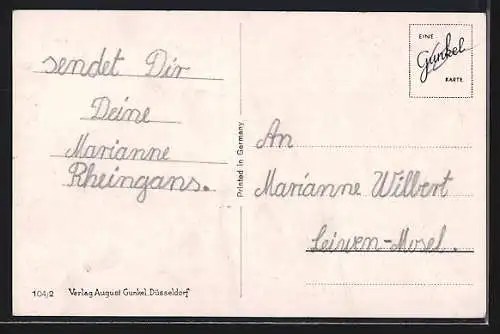 sendet Dir
Deine
Marianne
Rheingans.
104/2 Verlag August Gunkel, Düsseldorf
Printed in Germany
EINE
Gunkel
KARTE
An
Marianne Wilbert
Leiwen-Mosel.